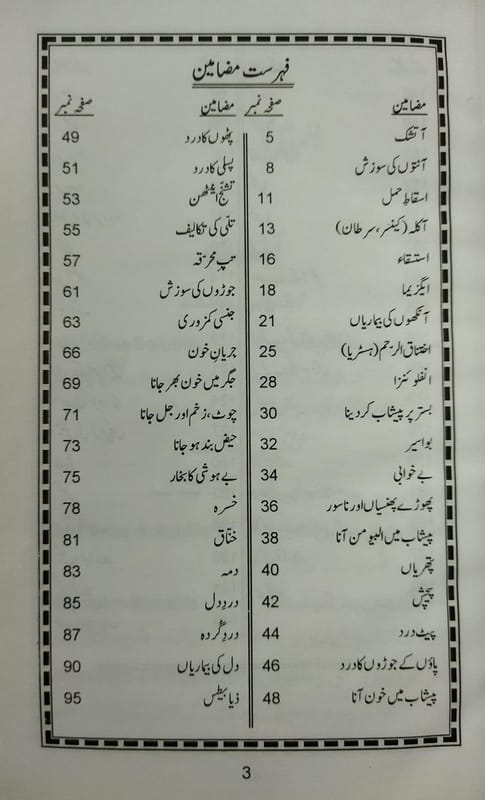 فہرست مضامین
مضامین صفحہ نمبر
آتشک 5
آنتوں کی سوزش 8
اسقاطِ حمل 11
آکلہ (کینسر، سرطان) 13
استسقاء 16
ایگزیما 18
آنکھوں کی بیماریاں 21
اختناق الرّحم (ہسٹریا) 25
انفلوئنزا 28
بستر پر پیشاب کر دینا 30
بواسیر 32
بے خوابی 34
پھوڑے پھنسیاں اور ناسور 36
پیشاب میں البیومن آنا 38
پتھریاں 40
پیچش 42
پیٹ درد 44
پاؤں کے جوڑوں کا درد 46
پیشاب میں خون آنا 48
مضامین صفحہ نمبر
پٹھوں کا درد 49
پسلی کا درد 51
تشنّج اینٹھن 53
تلّی کی تکالیف 55
تپِ محرّقہ 57
جوڑوں کی سوزش 61
جنسی کمزوری 63
جریانِ خون 66
جگر میں خون بھر جانا 69
چوٹ، زخم اور جل جانا 71
حیض بند ہو جانا 73
بے ہوشی کا بخار 75
خسرہ 78
خنّاق 81
دمہ 83
دردِ دل 85
دردِ گردہ 87
دل کی بیماریاں 90
ذیابیطس 95
3